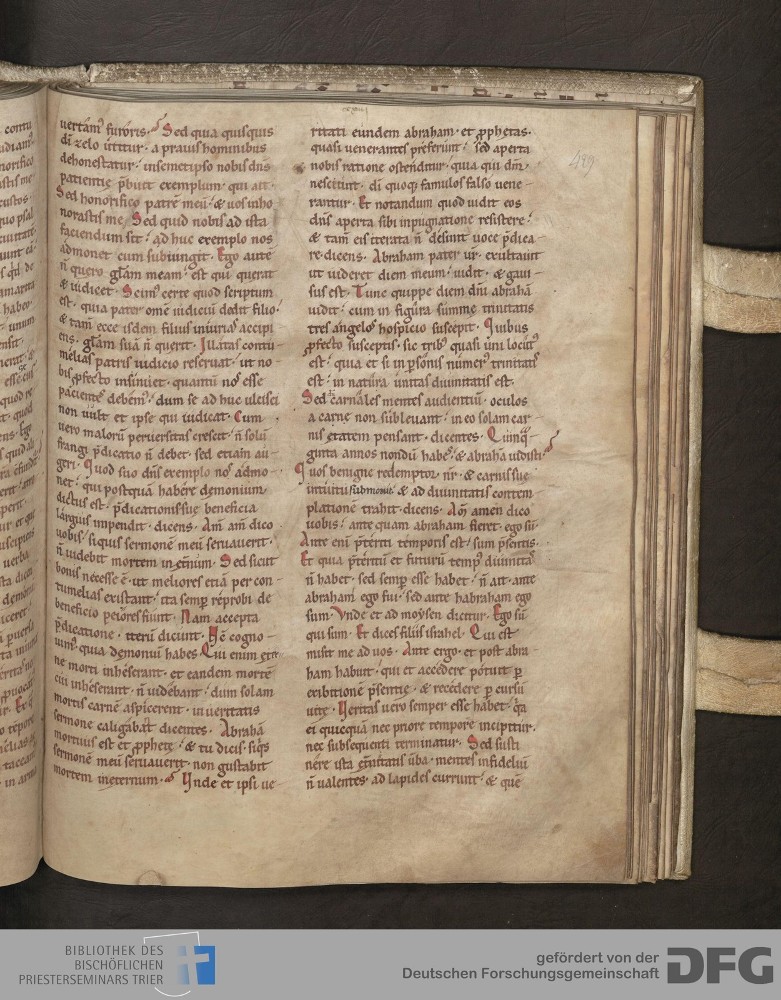 uertam᷒ furoris. Sed quia quisquis
di zelo utitur. a prauis hominibus
dehonestatur. insemetipso nobis dn̄s
patientie p̄buit exemplum. qui ait.
Sed honorifico patrē meū. & uos inho
norastis me. Sed quid nobis ad ista
faciendum sit. adhuc exemplo nos
admonet cum subiungit. Ego autē
n̄ quero gl̄am meam. est qui querat
& iudicet. Scim᷒ certe quod scriptum
est. quia pater omē iudiciū dedit filio.
& tam̄ ecce isdem filius iniurias accipi
ens. gl̄am suā n̄ querit. Illatas contu
melias patris iudicio reseruat. ut no
bis p̱fecto insinuet. quantū nos esse
pacientes debem᷒. dum se adhuc ulcisci
non uult et ipse qui iudicat. Cum
uero malorū peruersitas crescit. n̄ solū
frangi p̄dicatio n̄ debet. sed etiam au
geri. Quod suo dn̄s exemplo nos admo
net. qui postquā habere demonium
dictus est. p̄dicationis sue beneficia
largius impendit. dicens. Am̄ am̄ dico
uobis. siquis sermonē meū seruauerit.
n̄ uidebit mortem in et̄num. Sed sicut
bonis necesse ē. ut meliores etiā per con
tumelias existant. ita semp̱ reprobi de
beneficio peiores fiunt. Nam accepta
p̄dicatione. iterū dicunt. Nc̄ cogno
uim᷒ quia demoniū habes. Qui enim et̄ne
ne morti inheserant. et eandem mortē
cui inheserant. n̄ uidebant. dum solam
mortis carnē aspicerent. in ueritatis
sermone caligabant dicentes. Abrahā
mortuus est et p̱phete. & tu dicis. siq᷒s
sermonē meū seruauerit. non gustabit
mortem ineternum. Vnde et ipsi ue
ritati eundem abraham. et p̱phetas.
quasi uenerantes preferunt. sed aperta
nobis ratione ostenditur. quia qui dm̄
nesciunt. di quoq; famulos falso uene
rantur. Et notandum quod uidit eos
dn̄s aperta sibi inpugnatione resistere.
& tam̄ eis iterata n̄ desinit uoce p̄dica
re. dicens. Abraham pater ur̄. exultauit
ut uideret diem meum. uidit. & gaui
sus est. Tunc quippe diem dn̄i abrahā
uidit. cum in figura summe trinitatis
tres angelos hospicio suscepit. Quibus
p̱fecto susceptis. sic trib᷒ quasi uni locut᷒
est. quia et si in p̱sonis numer᷒ trinitatis
est. in natura unitas diuinitatis est.
Sed carnales mentes audientiū. oculos
a carne non subleuant. in eo solam car
nis etatem pensant. dicentes. Quinq̄
ginta annos nondū habes. & abrahā uidisti.
Quos benigne redemptor nr̄. & carnis sue
intuitu submouit & ad diuinitatis contem
plationē trahit. dicens. Am̄ amen dico
uobis. ante quam abraham fieret. ego sū.
Ante eni p̄teriti temporis est. sum p̄sentis.
Et quia p̄teritū et futurū temp᷒ diuinitas
n̄ habet. sed semp̱ esse habet. n̄ ait. ante
abraham ego fui. sed ante habraham ego
sum. Vnde et ad moysen dicitur. Ego sū
qui sum. Et dices filiis israhel. Qui est
misit me ad uos. Ante ergo. et post abra
ham habuit. qui et accedere potuit p̱
exibitionē p̄sentie. & recedere p̱ cursū
uite. Veritas uero semper esse habet. q̄a
ei quicquā nec priore tempore incipitur.
nec subsequenti terminatur. Sed susti
nere ista et̄nitatis ūba. mentes infideliū
n̄ ualentes. ad lapides currunt. & quē
489
BIBLIOTHEK DES
BISCHÖFLICHEN
PRIESTERSEMINARS TRIER
gefördert von der
Deutschen Forschungsgemeinschaft
DFG